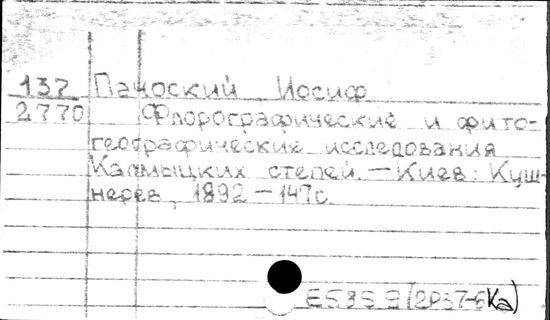 137 Пачоский Иосиф
2770 Флорографические и фито-
географические исследования
Калмыцких степей. — Киев: Куш-
нерев, 1892 — 147с.